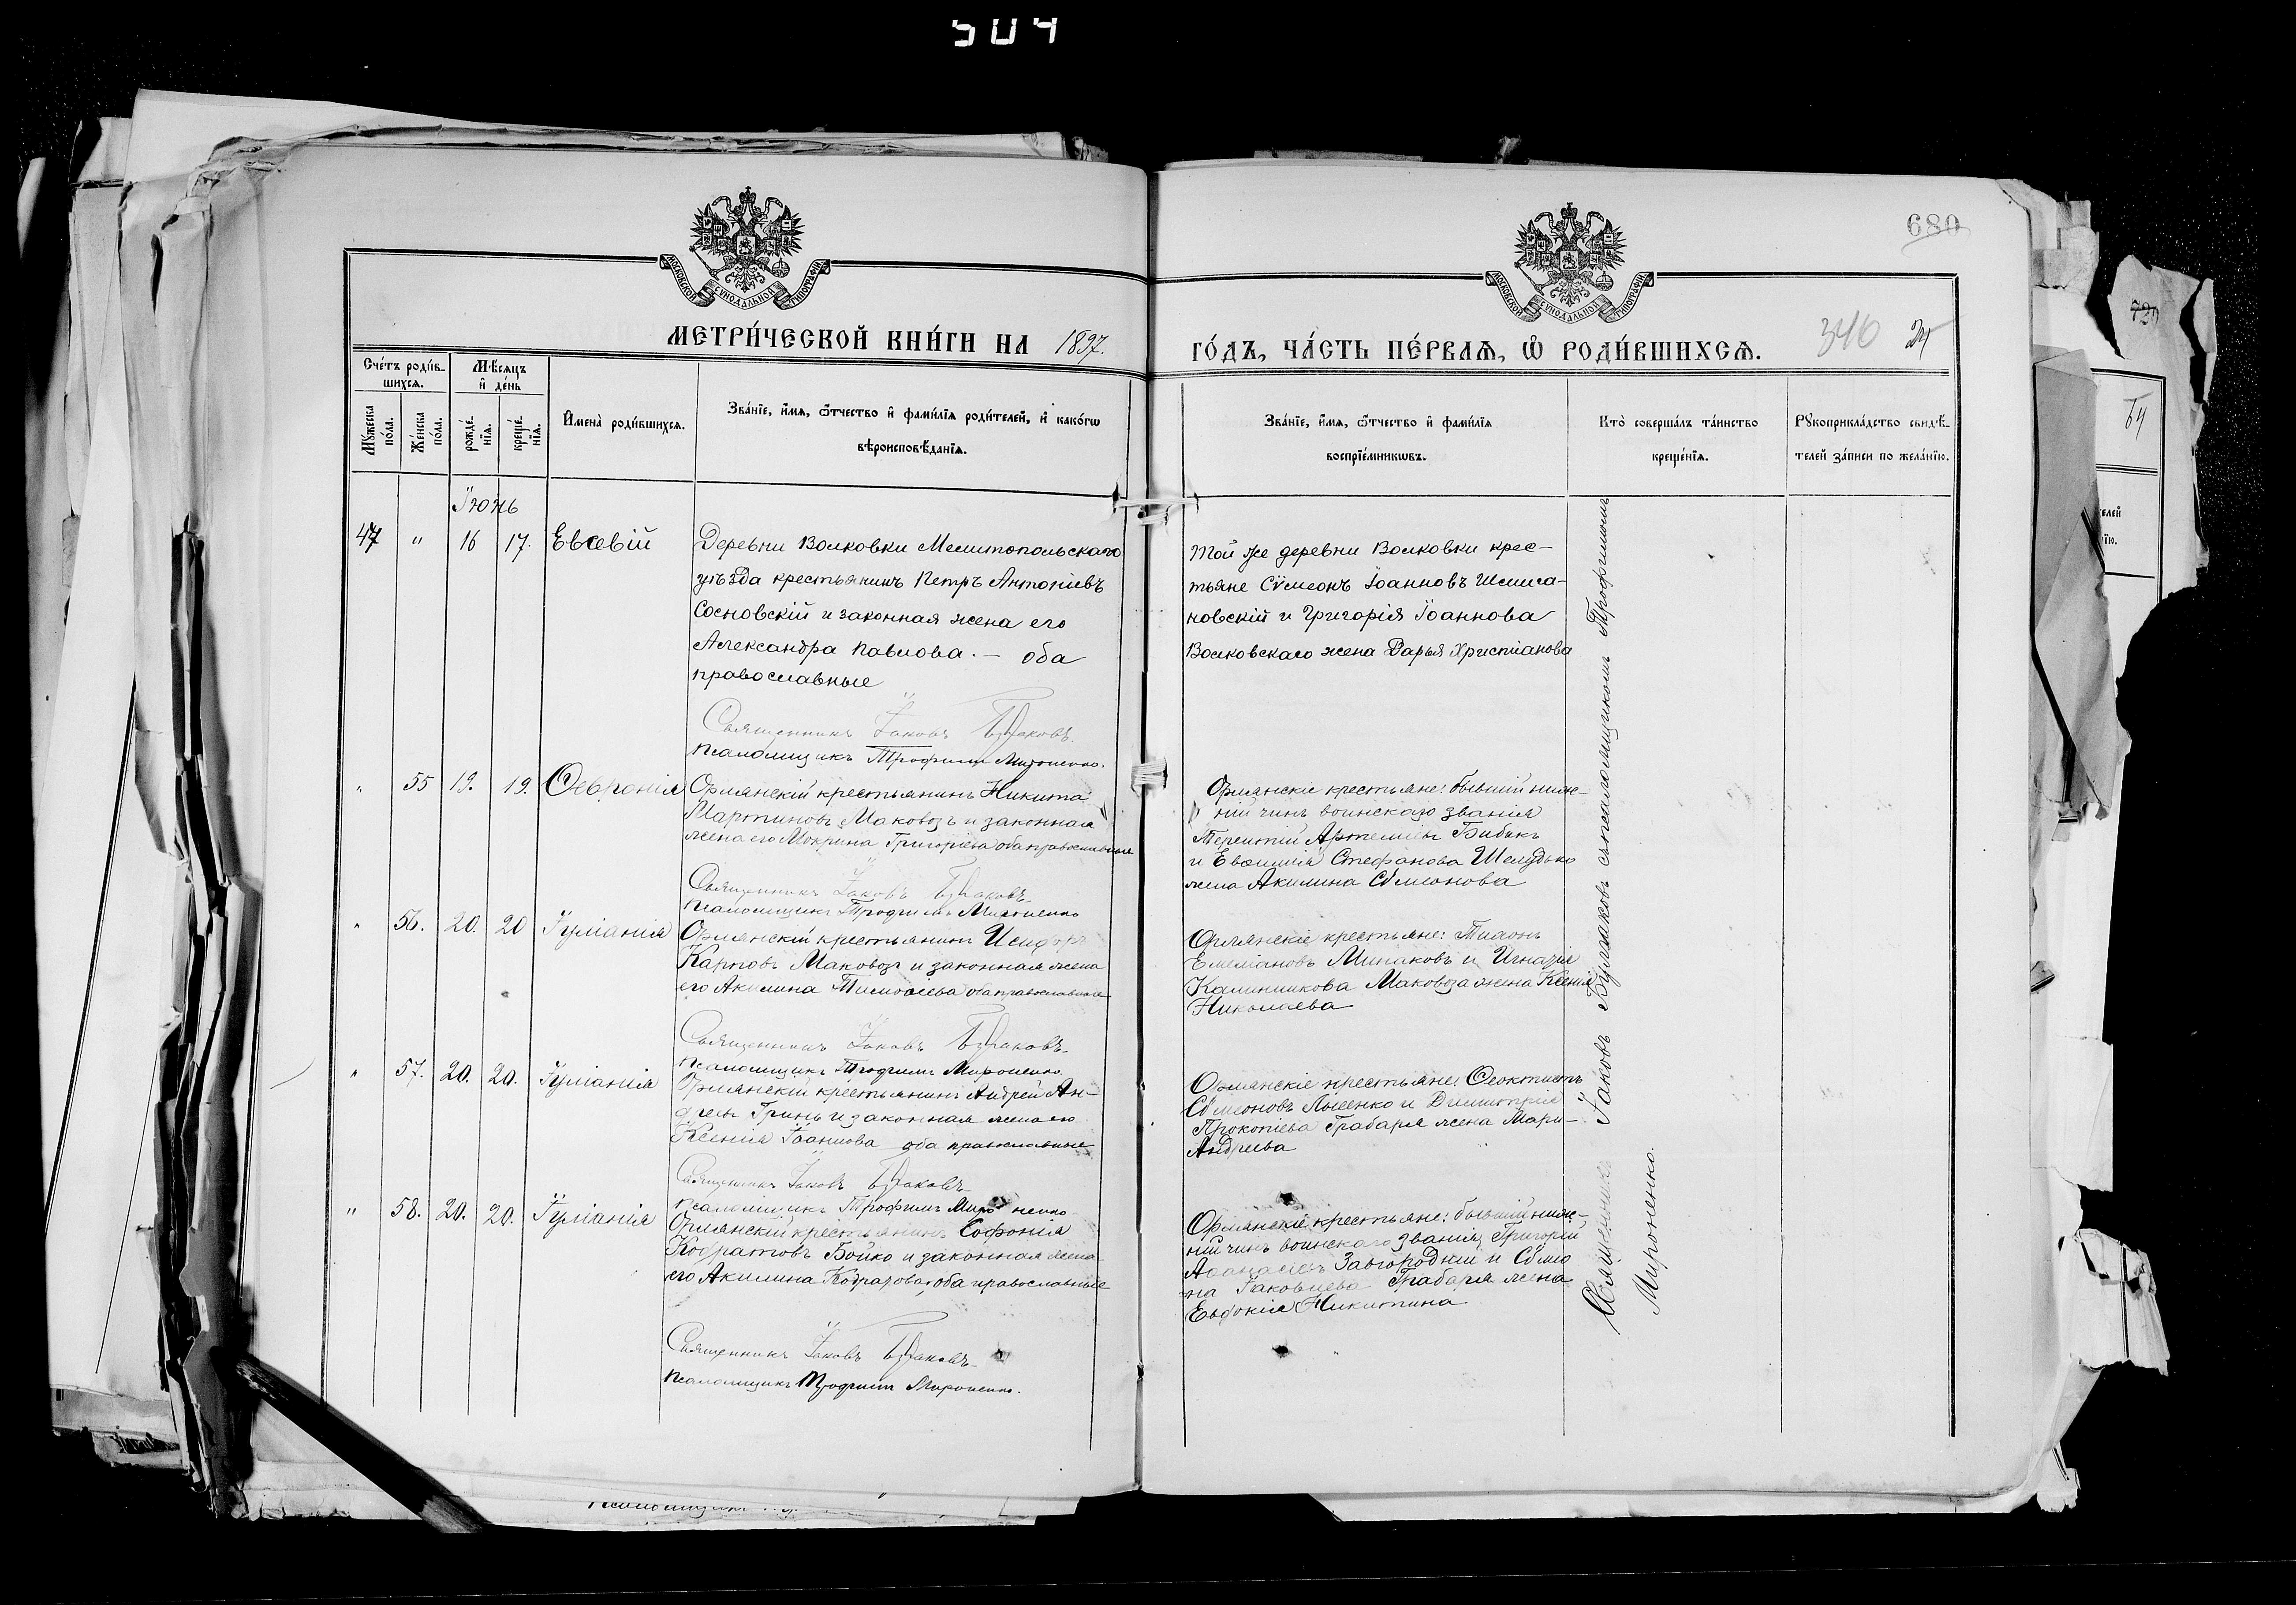 504
МОСКОВСКОЙ СѴНОДАЛЬНОЙ ТИПОГРАФІИ
МОСКОВСКОЙ СѴНОДАЛЬНОЙ ТИПОГРАФІИ
680
МЕТРИ́ЧЕСКОЙ КНИ́ГИ НА 1897.
ГО́ДЪ, ЧА́СТЬ ПЕ́РВАЯ, Ѡ҆ РОДИ́ВШИХСЯ.
340
Сче́тъ роди́в-
шихся.
Мѣ́сяцъ
и҆ де́нь
Мꙋ́жеска
по́ла.
Же́нска
по́ла.
рожде́-
нїя.
креще́-
нїя.
И҆мена̀ роди́вшихся.
Зва́нїе, и҆́мя, ѻ҆́тчество и҆ фами́лїя роди́телей, и҆ како́гѡ
вѣроисповѣ́данїя.
Зва́нїе, и҆́мя, ѻ҆́тчество и҆ фами́лїя
воспрїе́мникѡвъ.
Кто̀ соверша́лъ та́инство
креще́нїя.
Рꙋкоприкла́дство свидѣ́-
телей за́писи по жела́нїю.
Іюнь
47 " 16 17. Евсевій
Деревни Волковки Мелитопольскаго
уѣзда крестьянинъ Петръ Антоніевъ
Сосновскій и законная жена его
Александра Павлова. — оба
православные
Священникъ Іаковъ
Псаломщикъ Трофимъ Мироненко.
Той же деревни Волковки крес-
тьяне Сѵмеонъ Іоанновъ
новскій и Григорія Іоаннова
Волковскаго жена Дарья Христіанова
" 55 19. 19. Ѳевронія
Орлянскій крестьянинъ Никита
Мартиновъ Маковозъ и законная
жена его Мокрина Григоріева оба православные
Священникъ Іаковъ
Псаломщикъ Трофимъ Мироненко
Орлянскіе крестьяне: бывшій ниж-
ній чинъ воинскаго званія
Терентій Артеміевъ Бибикъ
и Евѳимія Стефанова Шелудько
жена Акилина Сѵмеонова
" 56. 20. 20 Іуліанія
Орлянскій крестьянинъ Исидоръ
Карповъ Маковозъ и законная жена
его Акилина Тимоѳеева оба православные
Священникъ Іаковъ
Псаломщикъ Трофимъ Мироненко.
Орлянскіе крестьяне: Тихонъ
Емеліановъ Минаковъ и Игнатія
Калинникова Маковоза жена Ксенія
Николаева
" 57. 20. 20. Іуліанія
Орлянскій крестьянинъ Андрей Ан-
дреевъ Гринь и законная жена его
Ксенія Іоаннова оба православные
Священникъ Іаковъ
Псаломщикъ Трофимъ Мироненко
Орлянскіе крестьяне: Ѳеоктистъ
Сѵмеоновъ Лысенко и Димитрія
Прокопіева Грабаря жена Марія
Андреева
" 58. 20. 20. Іуліанія
Орлянскій крестьянинъ Софонія
Кодратовъ Бойко и законная жена
его Акилина оба православные
Священникъ Іаковъ
Псаломщикъ Трофимъ Мироненко.
Орлянскіе крестьяне: бывшій ниж-
ній чинъ воинскаго званія Григорій
Аѳанасіевъ Завгородній и Сѵмео-
на Іаковлева Грабаря жена
Евдокія Никитина
Священникъ Іаковъ Бурлаковъ съ псаломщикомъ Трофимомъ
Мироненко.